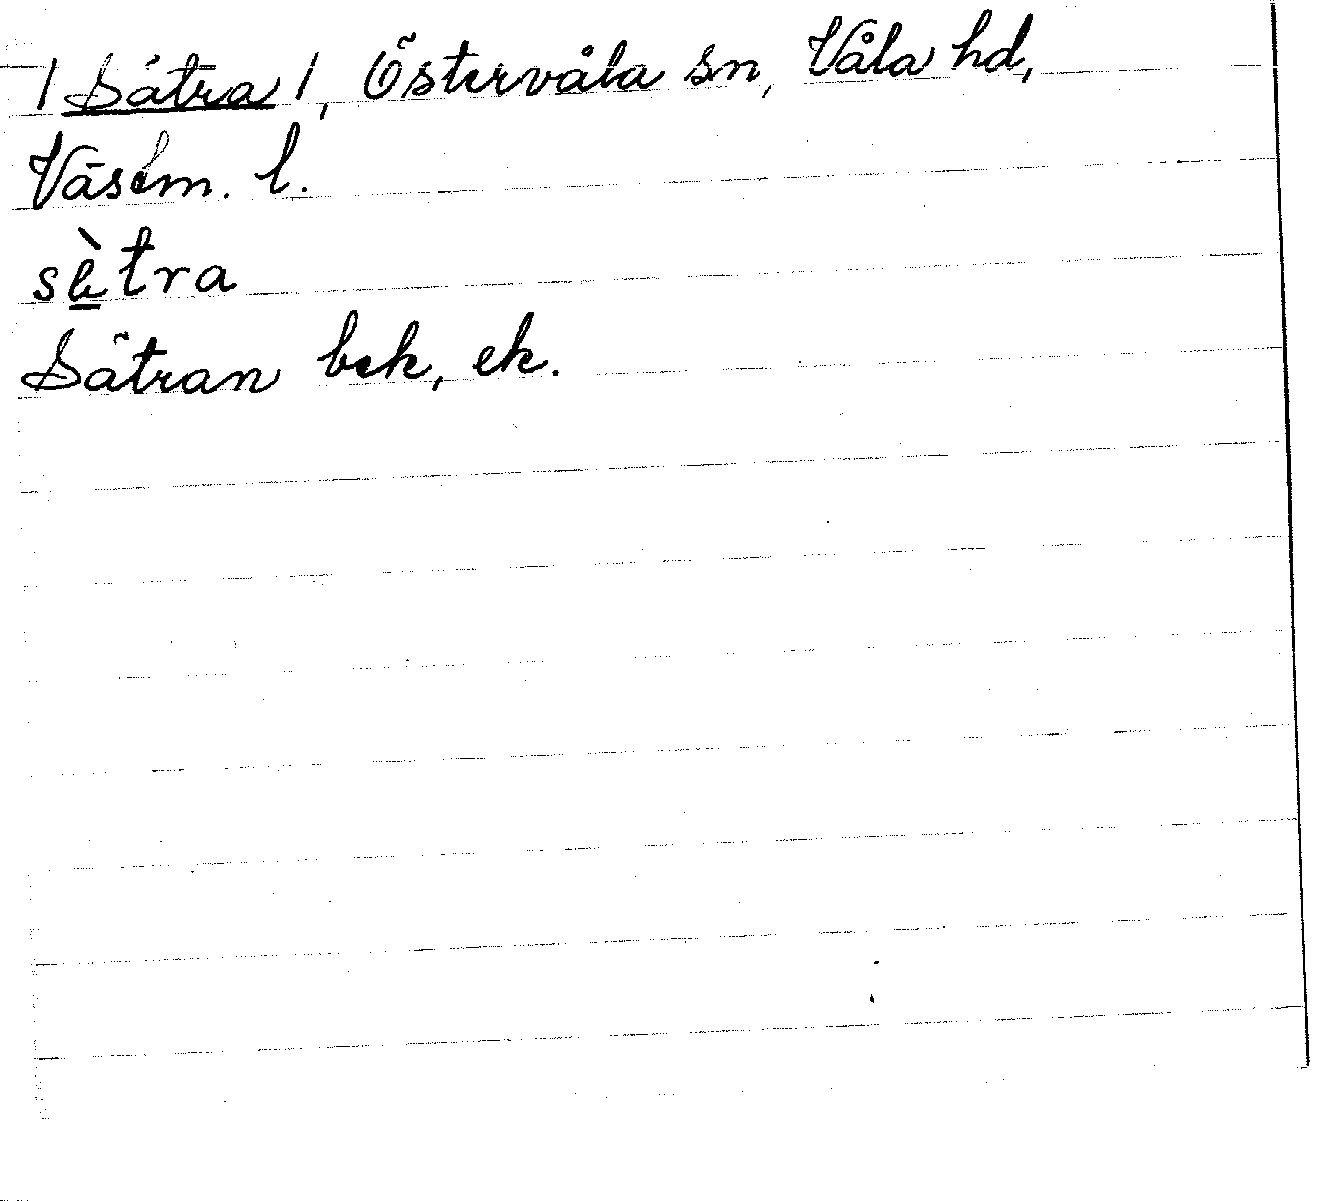 / Sätra /, Östervåla sn, Våla hd,
Väsem. l.
sè̲tra
Sätran bek, ek.